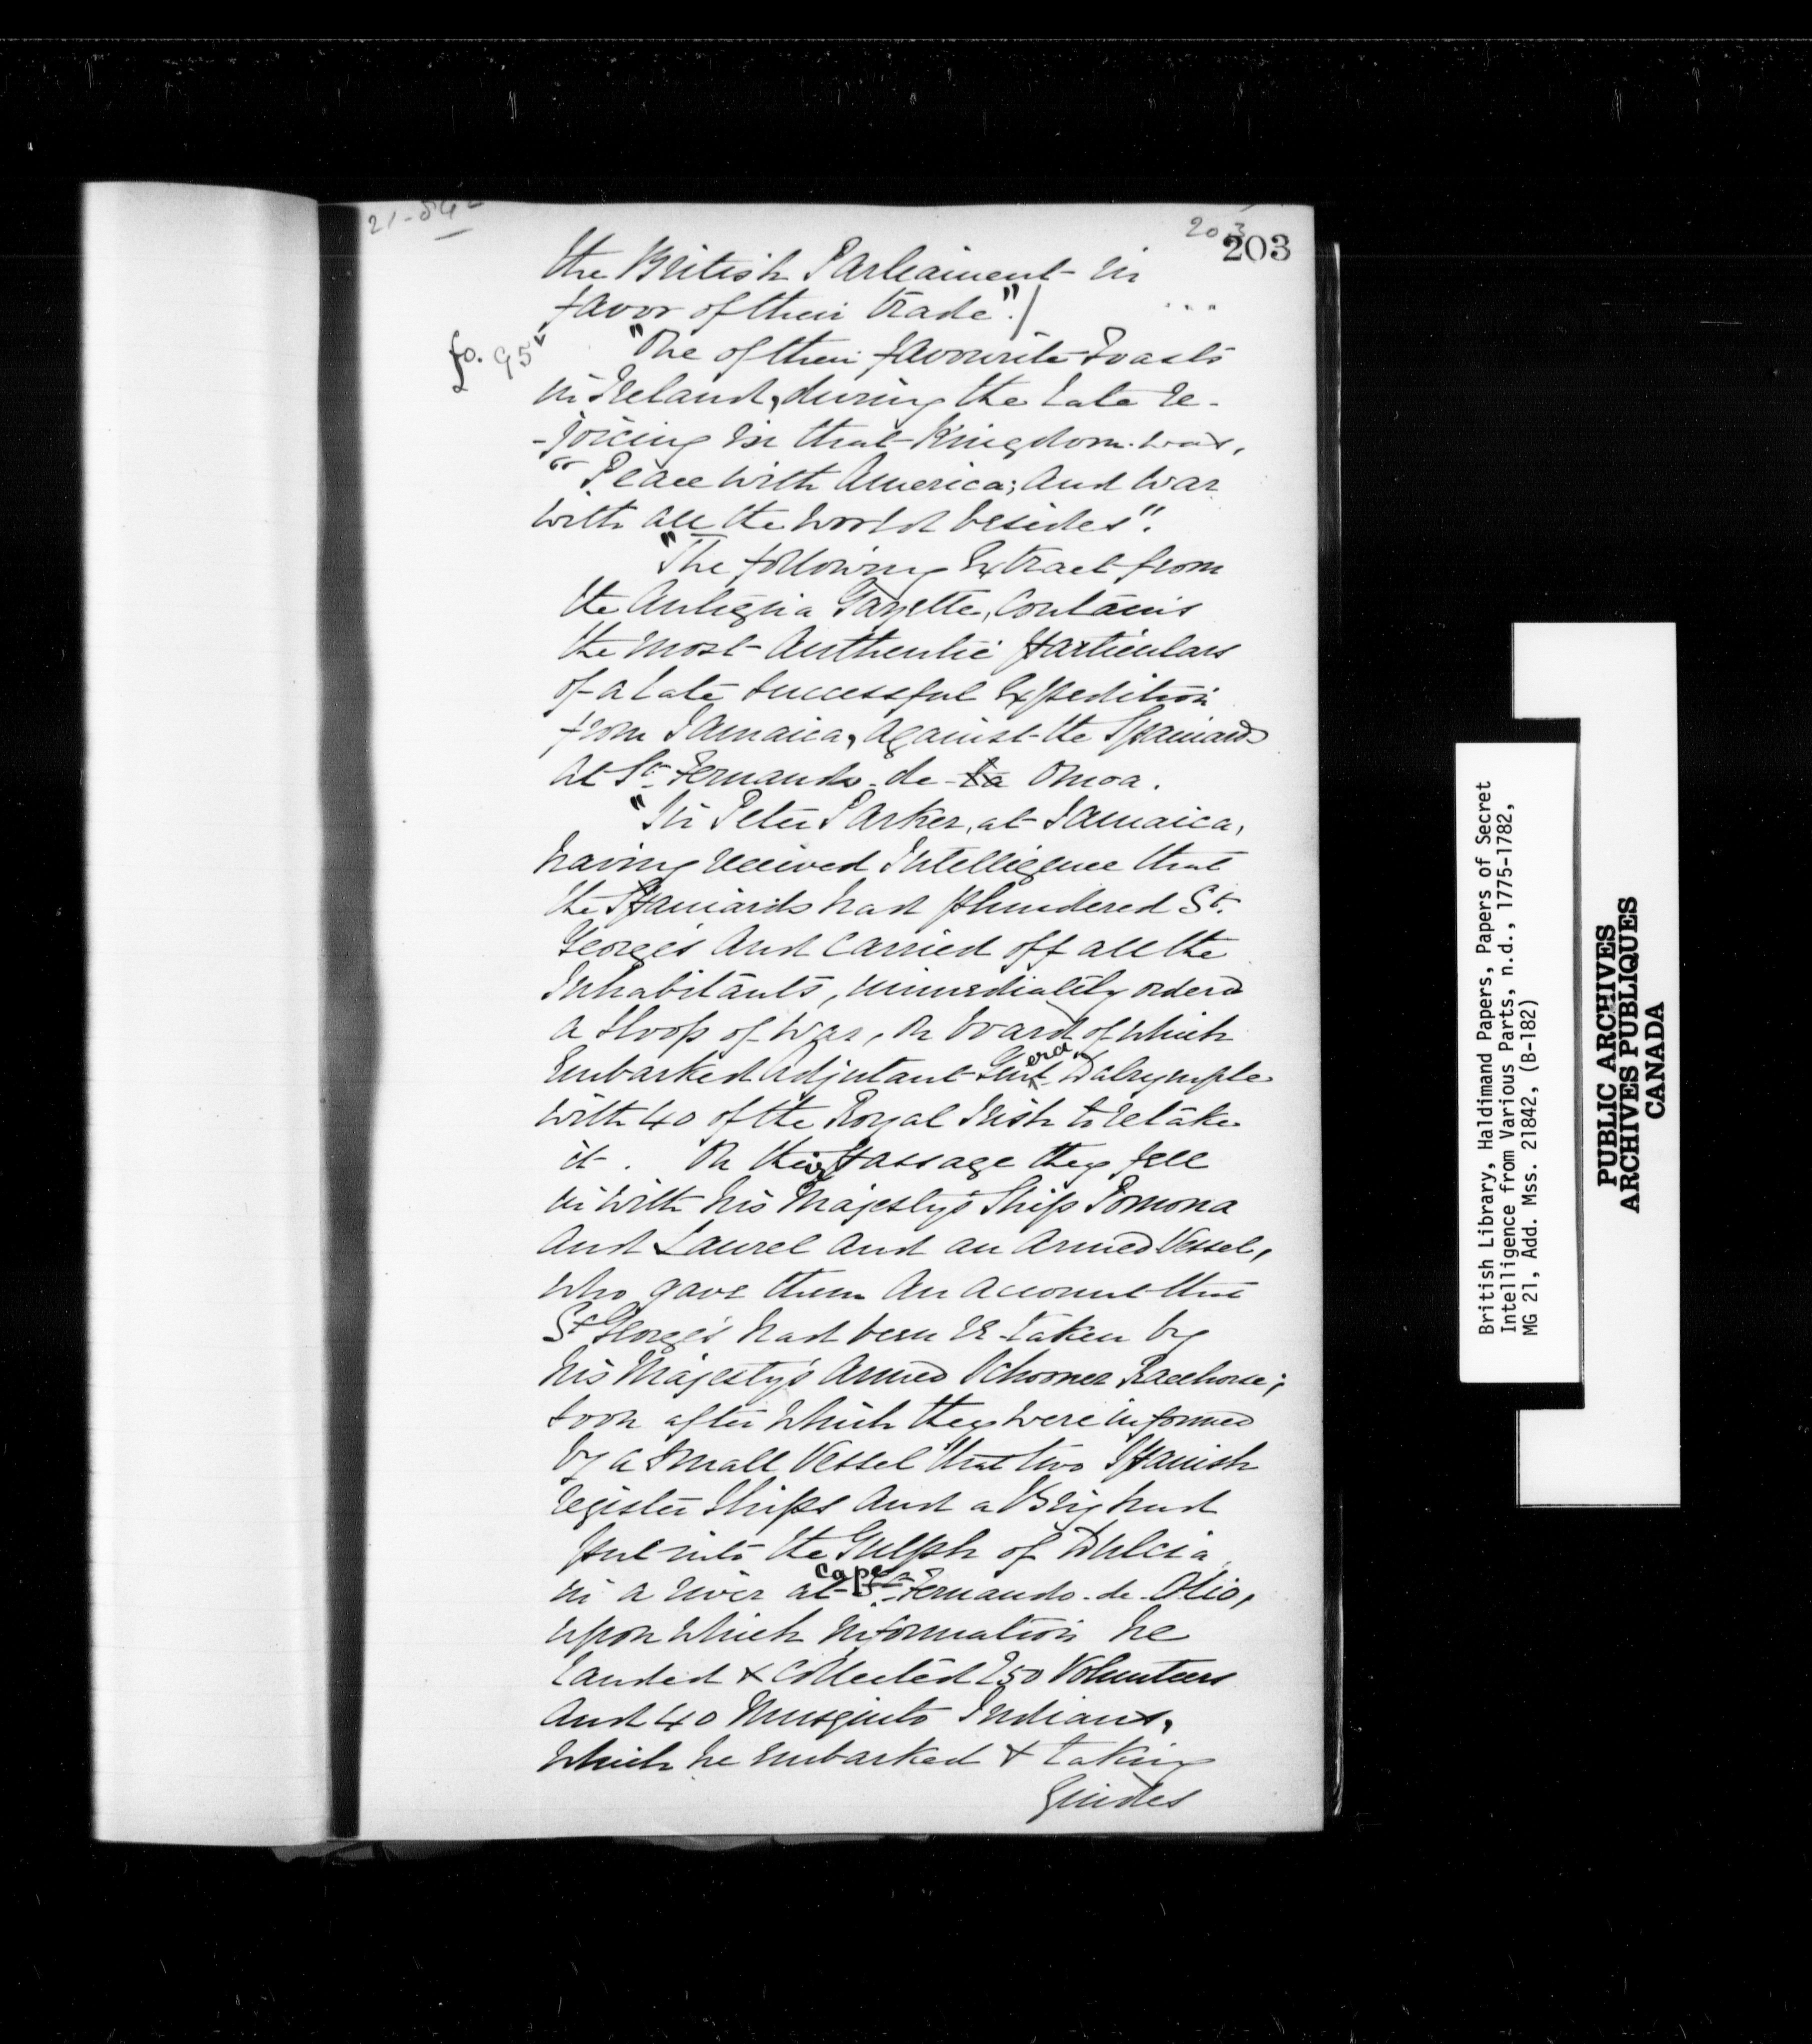 21-84
203
203
the British Parliament in
favor of their trade"./ ...
fo. 95v
"One of their favourite Toasts
in Ireland, during the late re-
-joicing in that Kingdom was,
"Peace with America; And War
with all the World besides".
"The following Extract from
the Antigua Gazette, Contains
the most Authentic particulars
of a late Successful Expedition
from Jamaica, Against the Spaniards
at St. Fernando-de-la Omoa.
"Sir Peter Parker, at Jamaica,
having received Intelligence that
the Spaniards had plundered St.
George's and Carried off all the
Inhabitants, immediately ordered
a Sloop of War, on board of which
Embarked Adjutant-General Dalrymple
with 40 of the Royal Irish to retake
it. On their passage they fell
in with his Majesty's Ships Pomona
And Laurel and an Armed Vessel,
who gave them An account that
St. George's had been re-taken by
his Majesty's Armed Schooner Racehorse;
soon after which they were informed
by a Small Vessel that two Spanish
register Ships and a Brig had
put into the Gulph of Dulcia
in a river at cape St. Fernando-de-Olio,
upon which information he
landed & Collected 250 Volunteers
And 40 Musquito Indians,
which he embarked & taking
Guides
British Library, Haldimand Papers, Papers of Secret
Intelligence from Various Parts, n.d., 1775-1782,
MG 21, Add. Mss. 21842, (B-182)
PUBLIC ARCHIVES
ARCHIVES PUBLIQUES
CANADA